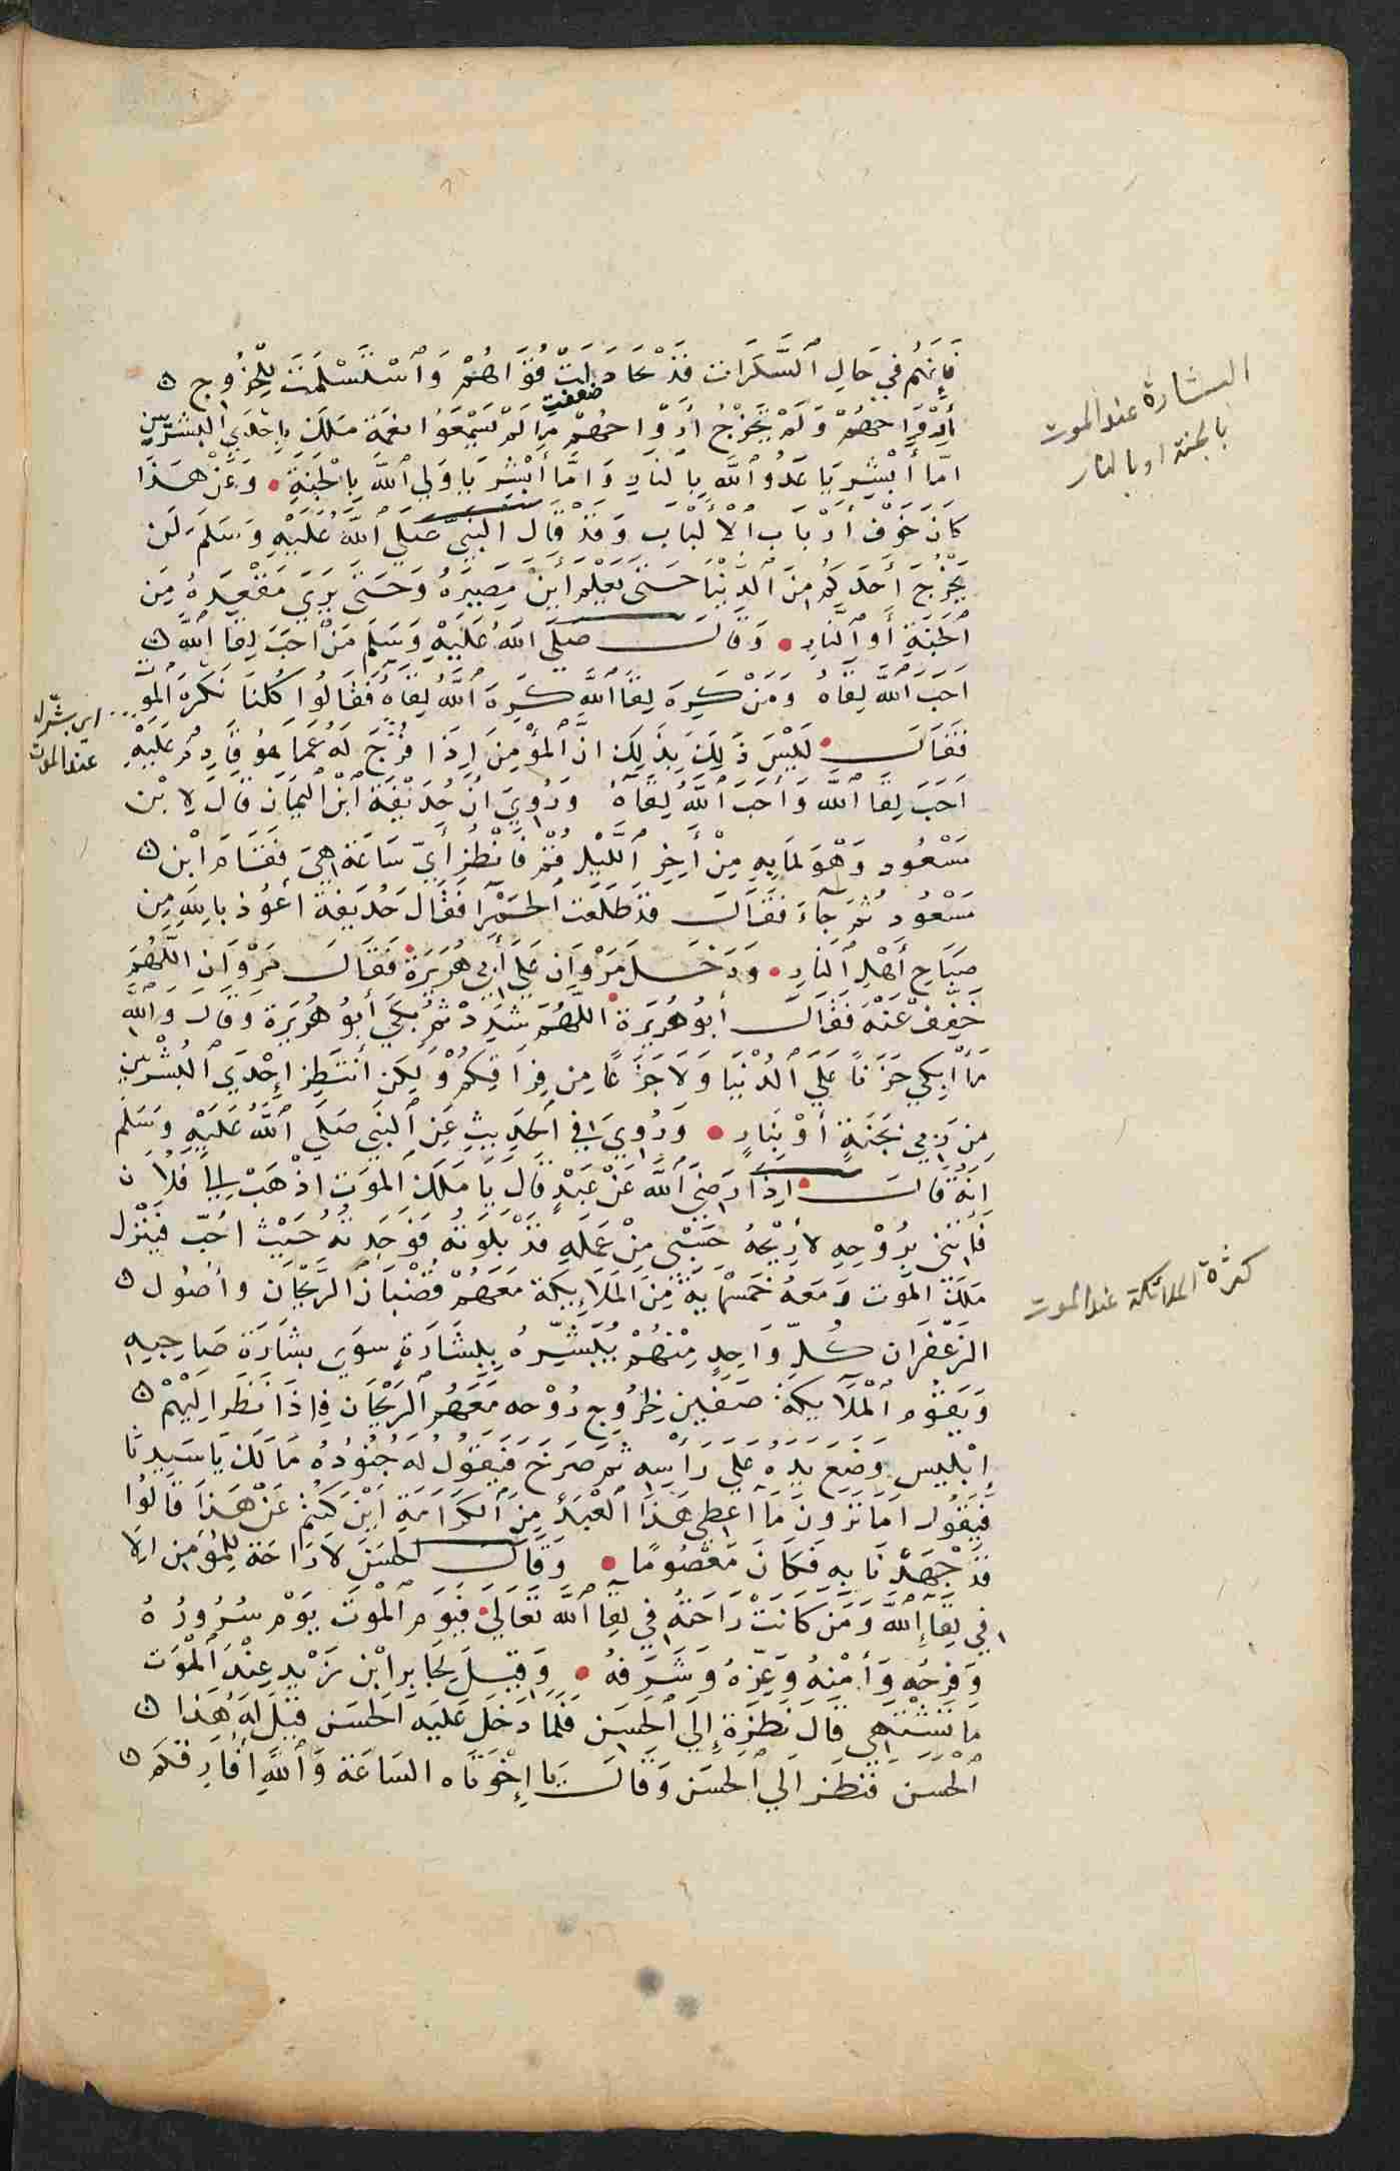 فَإِنَهُم فِي حَالِ اَلسَّكَرَات قَدْ تَخَاذَلَتْ قُوَاهُمْ وَاَسْتَسْلَمَتْ لِلْخُرُوج
ضعفت
أَرْوَاحهُمْ وَلَمْ تَخْرُجْ أَرْوَاحهُمْ مَا لَمْ يَسْمَعُوا نغمَة مَلَك بِاِحْدَي اَلبُشْرَيَيْن
امَّا أَبْشِر يَا عَدُو اَللَّه بِالنَارِ وَامَّا أَبْشِر يَا وَلِي اَللَّه بِالْجَنَةِ وَعَنْ هَذَا
كَانَ خَوْف أَرْبَاب الْأَلْبَاب وَقَدْ قَالَ النَبِيّ صَلَي اللَّهُ عَلَيْهِ وَسَلَمَ لَن
يَخْرُجَ أَحَدكُم مِنَ الدُنْيَا حَتَى يَعْلَم أَيْنَ مَصِيَرهُ وَحَتَى يَرَيَ مَقْعَدهُ مِنَ
اَلجَنَةِ أَو اَلنَارِ وَقَالَ صَلَّي اللَهُ عَلَيْهِ وَسَلَم مَنْ أحَبَ لِقَا اَللَّه
احَبَ اَللَّه لِقَاهُ وَمَنْ كَرِهَ لِقَا اللَّه كَرِهَ اَللَّهُ لِقَاهُ فَقَالُوا كُلنَا نَكْرَهُ المَو...
اين بشرك
عند الموت
فَقَالَ لَيْسَ ذَلِكَ بِذَلِكَ انَّ اَلمُؤْمِنَ اِذَا فُرِّجَ لَهُ عَمَا هُو قَادِم عَلَيْهِ
احَبَ لِقَا اَللَّه وَأَحَبَ اَللَّهُ لِقَآهُ وَرُوِيَ أنَ حُذَيْفَة اَبْن اليَمَان قَالَ لِابْن
مَسْعُود وَهْوَ لِمَا بِهِ مِنْ أَخِرِ اَللَّيْل قُمْ فَانْظُر أَيّ سَاعَة هِيَ فَقَامَ ابْن
مَسْعُود ثُمَ جَآءَ فَقَالَ قَد طَلَعَت اَلحَمْرَا فَقَالَ حُذَيفَة أعُوُذ بِاللَهِ مِن
صَبَاحِ أَهْلِ اَلنَارِ وَدَخَلَ مَرْوَان عَلَي أبِي هُرَيرَة فَقَالَ مَرْوَانَ اللَّهُمَ
خَفِف عَنْهُ فَقَالَ أَبُو هُرَيرَة اَللَّهُمَ شَدِدْ ثُمَ بَكَي أَبُو هُرَيرَة وَقَالَ وَاَللَّهِ
مَا أَبكِي حَزَنًا عَلَي اَلدُنْيَا وَلَا جَزَعًا مِن فِرَاقِكُمْ وَلَكِن أَنْتَظِر إِحْدَي اَلبُشْرَيين
مِن رَبِي بجَنَةٍ أَوْ بِنَارٍ وَرُوِيَ فِي اَلحَدِيث عَنِ اَلنَبِي صَلَي اَللَّهُ عَلَيْهِ وَسَلَم
انَهُ قَالَ اِذَا رَضِيَ اَللَّه عَنْ عَبْدٍ قَالَ يَا مَلَك اَلمَوت اذْهَبْ اِليَ فُلَان
فَأْتِنِى بِرُوْحِهِ لأُرِيْحَهُ حَسْبِي مِنْ عَمَلِهِ قَدْ بَلَوتَهُ فَوَجَدتهُ حَيْث أُحِبّ فَيَنْزل
مَلَك المَوت وَمَعَهُ خَمْسَمِايَة مِنَ المَلَايِكَة مَعَهُمْ قُضْبَان اَلرَيْحَان وأصُول
كثرة الملائكة عند الموت
الزَعْفَرَان كُلّ وَاحِدٍ مِنْهُمْ يُبَشِّرهُ بِبشَارَة سِوَي بشَارَة صَاحِبِهِ
وَيَقُوم اَلْمَلَايِكَة صَفَيْن لخِرُوج رُوْحه مَعَهُم اَلرَيْحَان فِاذَا نَظَرَ اِلَيْهُمْ
إِبْلِيس وَضَع يَدهُ عَلَي رَأسِهِ ثُمَ صَرَخَ فَيَقُولُ لَهُ جُنُودُهُ مَا لَكَ يَا سَيِدنَا
فَيَقُول أَمَا تَرَونَ مَا أعطِي هَذَا اَلعَبْدُ مِنَ اَلكَرَامَةِ أَيْن كُنْتُم عَنْ هَذَا قَالُوا
قَدْ جَهِدْنَا بِهِ فَكَانَ مَعْصُومًا وَقَالَ الحَسَن لَا رَاحَة لِلمُؤمِن اِلَا
فِي لِقَآءِ اَللَّه وَمَن كَانَتْ رَاحَتهُ فِي لِقَآ اَللَّه تَعَالَي فَيَوم اَلْمَوت يَوْم سُرُورُهُ
وَفَرحُه وَأَمْنهُ وَعِزّهُ وَشَرَفهُ وَقِيلَ لِجَابِر ابْن زَيْد عِنْدَ اَلْمَوت
مَا تَشْتَهِي قَالَ نَظرَة إِلَي اَلحسَن فَلَمَا دَخَلَ عَلَيهِ اَلحَسَن قِيلَ لَهُ هَذا
اَلْحَسَن فَنَظَرَ اِلَي اَلحسَن وَقَالَ يَا إِخْوَتَاه السَاعَة وَاَللَّهِ أفَارِقكُم
البشارة عند الموت
بالجنة او بالنار